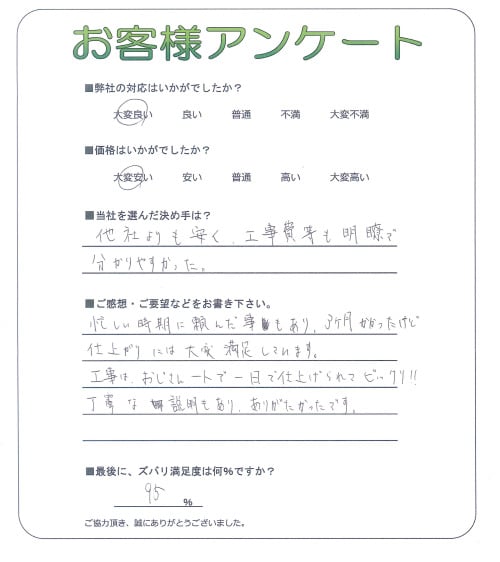 お客様アンケート
■弊社の対応はいかがでしたか？
大変良い 良い 普通 不満 大変不満
■価格はいかがでしたか？
大変安い 安い 普通 高い 大変高い
■当社を選んだ決め手は？
他社よりも安く、工事費等も明瞭で
分かりやすかった。
■ご感想・ご要望などをお書き下さい。
忙しい時期に頼んだ事もあり、3ヶ月かかったけど
仕上がりには大変満足しています。
工事は、おじさん一人で一日で仕上げられてビックリ!!
丁寧な説明もあり、ありがたかったです。
■最後に、ズバリ満足度は何%ですか？
95 %
ご協力頂き、誠にありがとうございました。